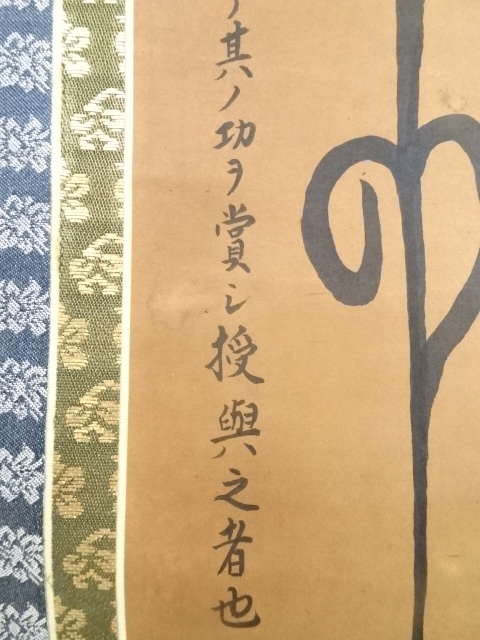 其ノ功ヲ賞シ授與之者也